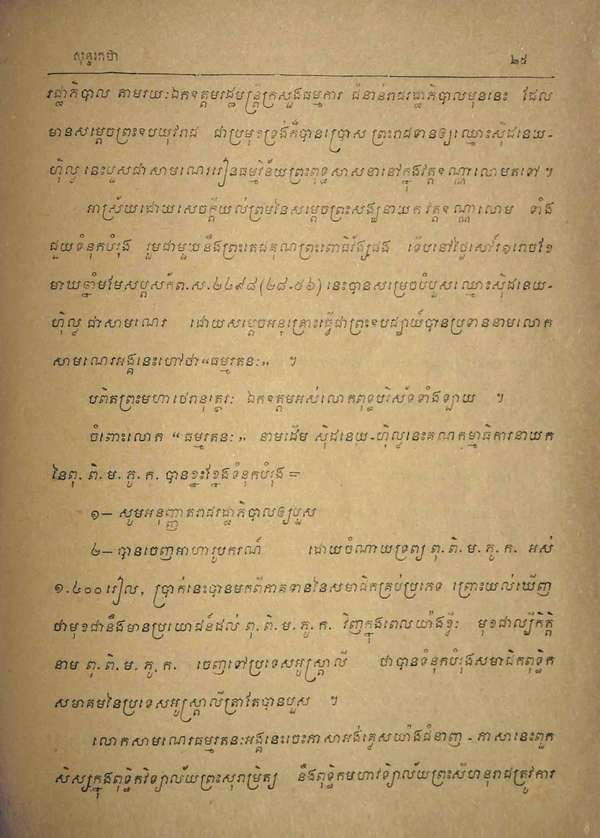 សុន្ទរកថា ២៥
រដ្ឋាភិបាល តាមរយៈឯកឧត្តមរដ្ឋមន្ត្រីក្រសួងធម្មការ ជំនាន់រាជរដ្ឋាភិបាលមុននេះ ដែល
មានសម្ដេចព្រះឧបយុវរាជ ជាប្រមុខទ្រង់ក៏បានប្រោស ព្រះរាជទានឲ្យឈ្មោះស៊ិដនេយ-
ហ៊ិល្វ នេះបួសជាសាមណេររៀនធម្មវិន័យព្រះពុទ្ធសាសនានៅក្នុងវត្តឧណ្ណាលោមតទៅ ។
អាស្រ័យដោយសេចក្ដីយល់ព្រមនៃសម្ដេចព្រះសង្ឃនាយក វត្តឧណ្ណាលោម ទាំង
ជួយទំនុកបំរុង រួមជាមួយនឹងព្រះតេជគុណព្រះពោធិវ័ង្សផង ទើបនៅថ្ងៃសៅរ៍ ១រោចខែ
មាឃឆ្នាំមមែសប្ដស័ក ព.ស.២៤៩៨(២៨-៥៦) នេះបានសម្រេចបំបួសឈ្មោះស៊ិដនេយ-
ហ៊ិល្វ ជាសាមណេរ ដោយសម្ដេចអនុគ្រោះធ្វើជាព្រះឧបជ្ឈាយ៍បានប្រទាននាមលោក
សាមណេរអង្គនេះហៅថា“ធម្មរតនៈ” ។
បពិតព្រះមហាថេរានុត្ថេរៈ ឯកឧត្តមអស់លោកពុទ្ធបរិស័ទទាំងឡាយ ។
ចំពោះលោក “ធម្មរតនៈ” នាមដើម ស៊ិដនេយ-ហ៊ិល្វនេះគណកម្មាធិការនាយក
នៃពុ. ពិ. ម. ភូ. ក. បានខ្នះខ្នែងទំនុកបំរុង =
១— សូមអនុញ្ញាតរាជរដ្ឋាភិបាលឲ្យបួស
២— បានចេញអាហារូបករណ៍ ដោយចំណាយទ្រព្យ ពុ. ពិ. ម. ភូ. ក. អស់
១.៤០០រៀល, ប្រាក់នេះបានមកពីភាគទាននៃសមាជិកគ្រប់ប្រភេទ ព្រោះយល់ឃើញ
ថាមុខជានឹងមានប្រយោជន៍ដល់ ពុ. ពិ. ម. ភូ. ក. វិញក្នុងពេលយ៉ាងខ្លី មុខជាល្បីកិត្តិ
នាម ពុ. ពិ. ម. ភូ. ក. ចេញទៅប្រទេសអូស្ត្រាលី ថាបានទំនុកបំរុងសមាជិកពុទ្ធិក
សមាគមនៃប្រទេសអូស្ត្រាលីត្រាតែបានបួស ។
លោកសាមណេរធម្មរតនៈអង្គនេះចេះភាសាអង់គ្លេសយ៉ាងជំនាញ - ភាសានេះពួក
សិស្សក្នុងពុទ្ធិកវិទ្យាល័យព្រះសុរាម្រិត្យ នឹងពុទ្ធិកមហាវិទ្យាល័យព្រះសីហនុរាជត្រូវការ